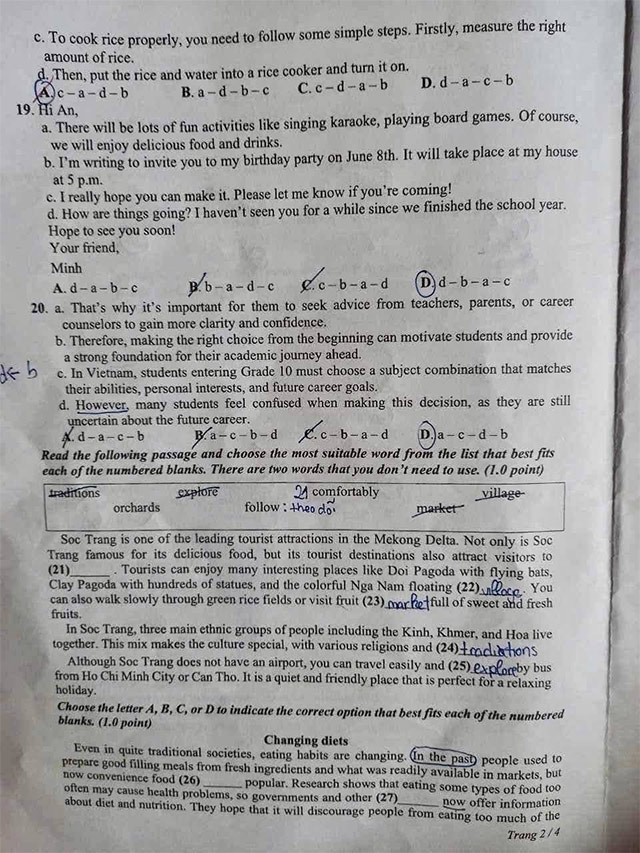 c. To cook rice properly, you need to follow some simple steps. Firstly, measure the right
amount of rice.
d. Then, put the rice and water into a rice cooker and turn it on.
A. c – a – d – b B. a – d – b – c C. c – d – a – b D. d – a – c – b
19. Hi An,
a. There will be lots of fun activities like singing karaoke, playing board games. Of course,
we will enjoy delicious food and drinks.
b. I'm writing to invite you to my birthday party on June 8th. It will take place at my house
at 5 p.m.
c. I really hope you can make it. Please let me know if you're coming!
d. How are things going? I haven't seen you for a while since we finished the school year.
Hope to see you soon!
Your friend,
Minh
A. d – a – b – c B. b – a – d – c C. c – b – a – d D. d – b – a – c
20. a. That's why it's important for them to seek advice from teachers, parents, or career
counselors to gain more clarity and confidence.
b. Therefore, making the right choice from the beginning can motivate students and provide
a strong foundation for their academic journey ahead.
b c. In Vietnam, students entering Grade 10 must choose a subject combination that matches
their abilities, personal interests, and future career goals.
d. However, many students feel confused when making this decision, as they are still
uncertain about the future career.
A. d – a – c – b B. a – c – b – d C. c – b – a – d D. a – c – d – b
Read the following passage and choose the most suitable word from the list that best fits
each of the numbered blanks. There are two words that you don't need to use. (1.0 point)
traditions explore 21 comfortably village
orchards follow : theo dõi market
Soc Trang is one of the leading tourist attractions in the Mekong Delta. Not only is Soc
Trang famous for its delicious food, but its tourist destinations also attract visitors to
(21)______ . Tourists can enjoy many interesting places like Doi Pagoda with flying bats,
Clay Pagoda with hundreds of statues, and the colorful Nga Nam floating (22) village. You
can also walk slowly through green rice fields or visit fruit (23) market full of sweet and fresh
fruits.
In Soc Trang, three main ethnic groups of people including the Kinh, Khmer, and Hoa live
together. This mix makes the culture special, with various religions and (24) traditions
Although Soc Trang does not have an airport, you can travel easily and (25) explore by bus
from Ho Chi Minh City or Can Tho. It is a quiet and friendly place that is perfect for a relaxing
holiday.
Choose the letter A, B, C, or D to indicate the correct option that best fits each of the numbered
blanks. (1.0 point)
Changing diets
Even in quite traditional societies, eating habits are changing. In the past, people used to
prepare good filling meals from fresh ingredients and what was readily available in markets, but
now convenience food (26) ______ popular. Research shows that eating some types of food too
often may cause health problems, so governments and other (27) ______ now offer information
about diet and nutrition. They hope that it will discourage people from eating too much of the
Trang 2/4